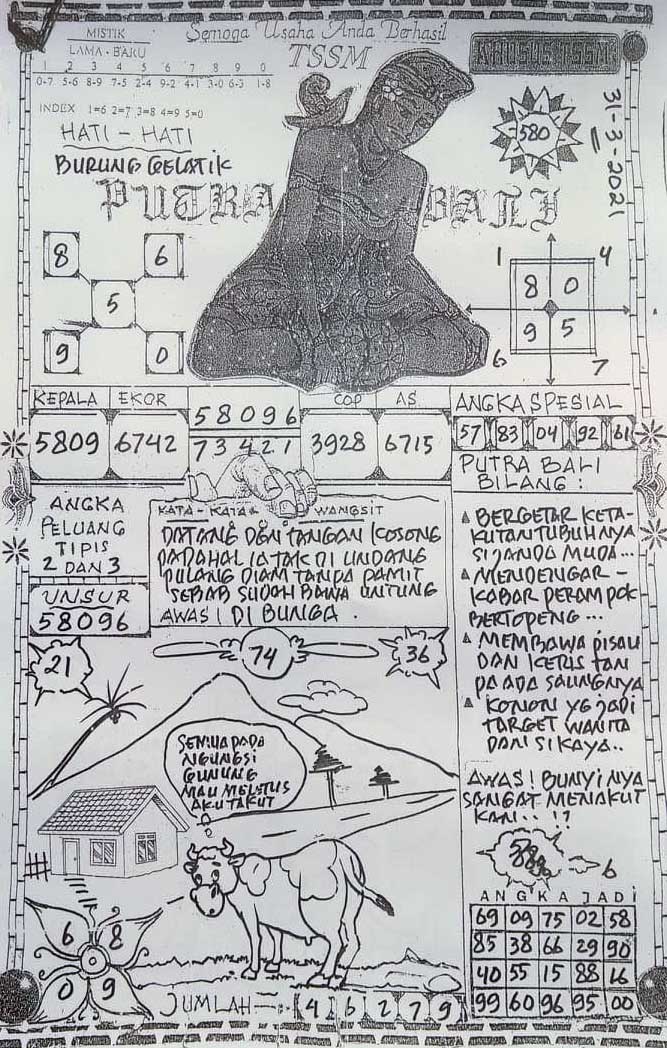 MISTIK
LAMA - BARU
1 2 3 4 5 6 7 8 9 0
0-7 5-6 8-9 7-5 2-4 9-2 4-1 3-0 6-3 1-8
INDEX 1=6 2=7 3=8 4=9 5=0
HATI - HATI
BURUNG GELATIK
Semoga Usaha Anda Berhasil
TSSM
KHUSUS TSSM
580
31-3-2021
PUTRA BALI
8 6
5
9 0
1 4
8 0
9 5
6 7
KEPALA EKOR
5809 6742
58096
73421
COP AS
3928 6715
ANGKA SPESIAL
57 83 04 92 61
ANGKA
PELUANG
TIPIS
2 DAN 3
UNSUR
58096
KATA - KATA WANGSIT
DATANG DGN TANGAN KOSONG
PADAHAL IA TAK DI UNDANG
PULANG DIAM TANPA PAMIT
SEBAB SUDAH BAWA UNTUNG
AWAS! DI BUNGA.
PUTRA BALI
BILANG :
BERGETAR KETA-
KUTAN TUBUHNYA
SI JANDA MUDA...
MENDENGAR -
KABAR PERAMPOK
BERTOPENG...
MEMBAWA PISAU
DAN KERIS TAN
PA ADA SARUNGNYA
KONON YG JADI
TARGET WANITA
DAN SI KAYA..
AWAS! BUNYI NYA
SANGAT MENAKUT
KAN..!?
21
74
36
SEMUA PADA
NGUNGSI
GUNUNG
MAU MELETUS
AKU TAKUT
6
6 8
0 9
JUMLAH : 4 6 2 7 9
ANGKA JADI
69 09 75 02 58
85 38 66 29 90
40 55 15 88 16
99 60 96 95 00